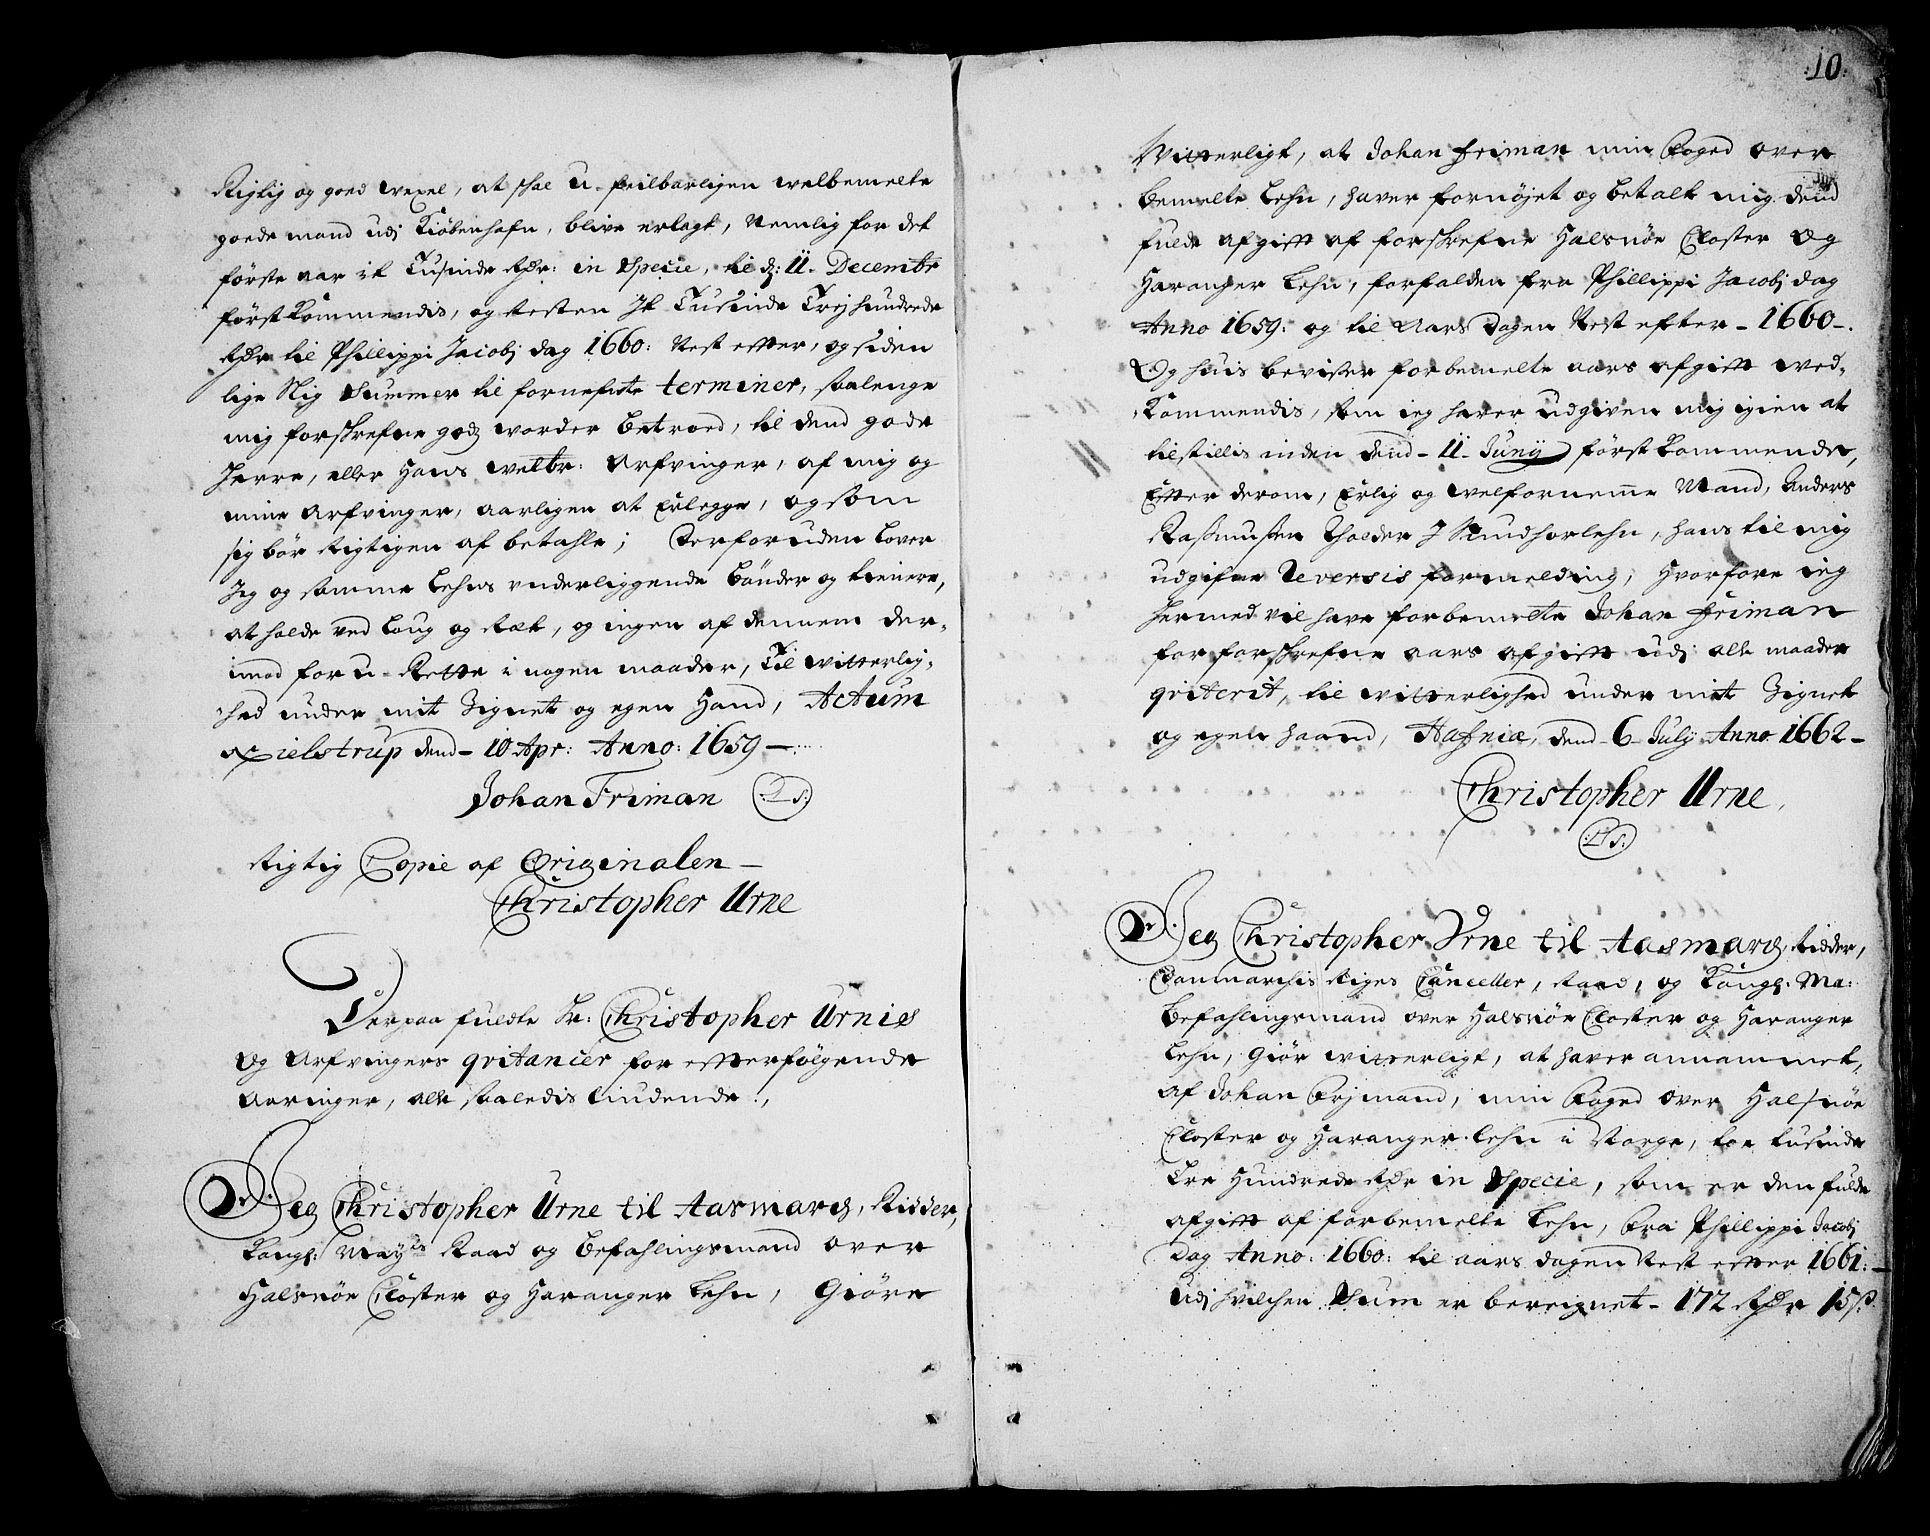 Rigtig og goed wexel, at skal u-feilbarligen welbemelte
goede mand udj Kiöbenhafn, blive erlagt, Nemlig for det
förste aar it Tusinde Rdr: in Specie, til d: 11. Decembr
förstkommendis, og resten It Tusinde Trej hundrede
Rdr til Phillippi Jacobj dag 1660: Nest efter, og siden
lige slig Summer til fornefnte terminer, saalenge
mig forskrefne godz worder betroed, til dend gode
Herre, eller Hans welbr: Arfvinger, af mig og
mine Arfvinger, aarligen at Erlegge, og som
sig bör Rigtigen af betahle; Derforuden lover
Jeg og samme Lehns underliggende bönder og tienere,
at holde ved Loug og Ræt, og ingen af dennem der,
imod foru-Rette i nogen maader, Til witterlig,
hed under mit Zignet og egen Hand, Actum
Kielstrup dend - 10 Apr: Anno: 1659 -
Johan Friman :LS:
Rigtig Copie af Originalen -
Christopher Urne
Derpaa fuldte Hr: Christopher Urnis
og Arfvingers qvitancer for efterfölgende
Aaringer, alle saaledis liudende:,
Jeg Christopher Urne til Aasmarch, Ridder,
Kongl: Mayts Raad og Befahlingsmand over
Halsnöe Closter og Haranger Lehn, Giöre
:10:
Witterligt, at Johan Friman min Foged over
bemelte Lehn, haver fornöjet og betalt mig dend
fulde afgift af forskrefne Halsnöe Closter og
Haranger Lehn, forfalden fra Phillippi Jacobj dag
Anno 1659: og til Aars dagen Nest efter - 1660 -.
Og huis beviser forbemelte aars afgift ved,
kommendis, som ieg haver udgiven mig igien at
tilstillis inden dend - 11 - Junij förstkommende,
Efter derom, Erlig og welfornemme Mand, Anders
Rasmusen Tholder I Sundhorlehn, hans til mig
udgifne Reversis formelding, Hvorfore ieg
hermed vil have forbemelte Johan Friman
for forskrefne aars afgift udj alle maader
qviterit, til witterlighed under mit Zignet
og egen haand, Hafniæ, dend - 6 - Julij Anno 1662 -
Christopher Urne,
:LS:
Jeg Christopher Urne til Aasmarch, Ridder,
Danmarchis Riges Canceller, Raad, og Kongl: Ma:
Befahlingsmand over Halsnöe Closter og Haranger
Lehn, Giör witterligt, at haver annammet,
af Johan Frijmand, min Foged over Halsnöe
Closter og Haranger Lehn i Norge, toe tusinde
Tre Hundrede Rdr in Specie, som er den fulde
afgift af forbemelte Lehn, fra Phillippi Jacobj
dag Anno: 1660: til aars dagen Nest efter 1661: -
Udj hvilchen Sum er bereignet - 172 Rdr 15ß